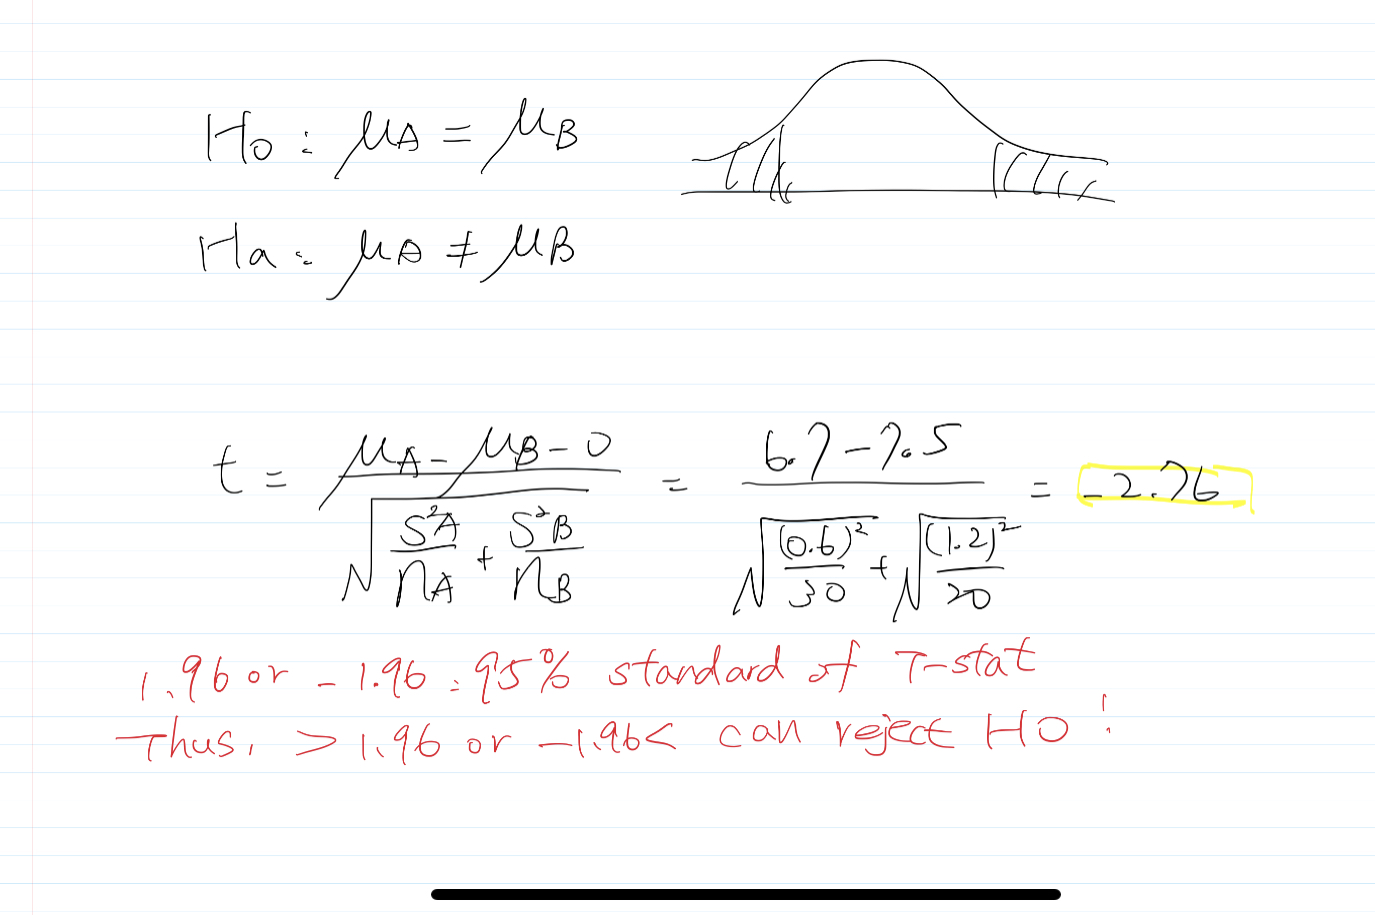 Ho : μA = μB
Ha : μA ≠ μB
t = (μA - μB - 0) / √(S²A/nA + S²B/nB) = (6.7 - 7.5) / (√((0.6)²/30) + √((1.2)²/20)) = -2.76
1.96 or -1.96 : 95% standard of T-stat
Thus, > 1.96 or -1.96< can reject HO!